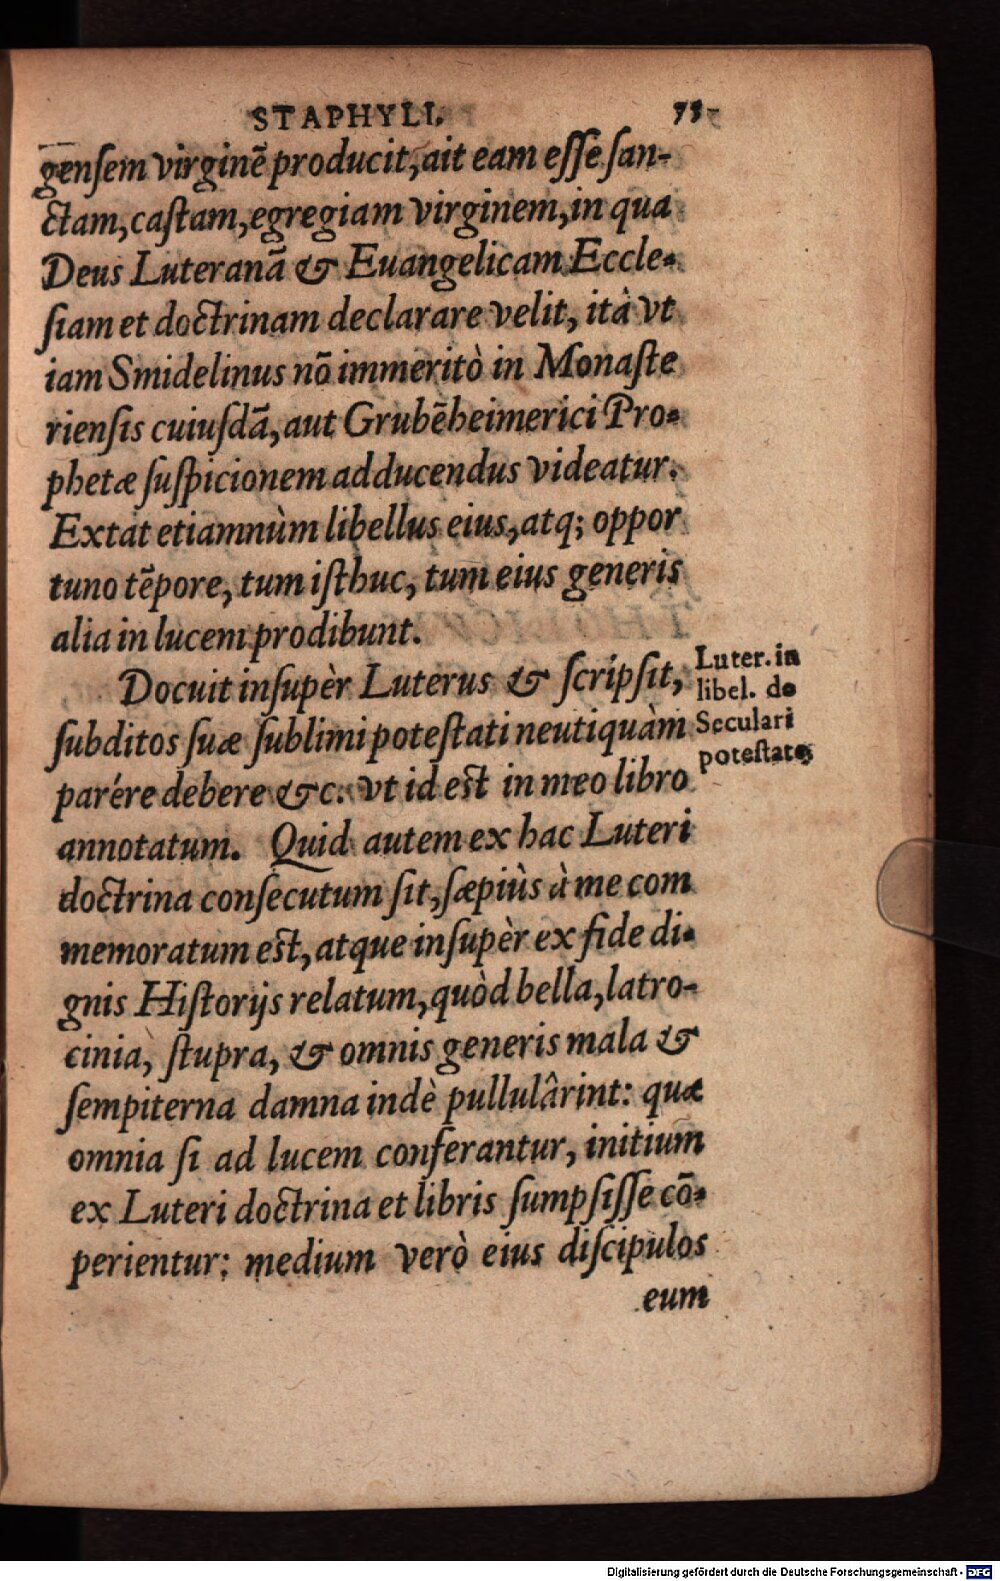 STAPHYLI. 73
genſem virginē producit, ait eam eſſe ſan-
ctam, caſtam, egregiam virginem, in qua
Deus Luteranā & Euangelicam Eccle-
ſiam et doctrinam declarare velit, ità vt
iam Smidelinus nō immeritò in Monaſte
rienſis cuiuſdā, aut Grubēheimerici Pro-
phetæ ſuſpicionem adducendus videatur.
Extat etiamnùm libellus eius, atq; oppor
tuno tēpore, tum iſthuc, tum eius generis
alia in lucem prodibunt.
Docuit inſupèr Luterus & ſcripſit,
ſubditos ſuæ ſublimi poteſtati neutiquàm
parére debere &c. vt id est in meo libro
annotatum. Quid autem ex hac Luteri
doctrina conſecutum ſit, ſæpiùs à me com
memoratum est, atque inſupèr ex fide di-
gnis Hiſtorijs relatum, quòd bella, latro-
cinia, ſtupra, & omnis generis mala &
ſempiterna damna indè pullulârint: quæ
omnia ſi ad lucem conferantur, initium
ex Luteri doctrina et libris ſumpſiſſe cō-
perientur: medium verò eius diſcipulos
eum
Luter. in
libel. de
Seculari
poteſtate
Digitalisierung gefördert durch die Deutsche Forschungsgemeinschaft - DFG